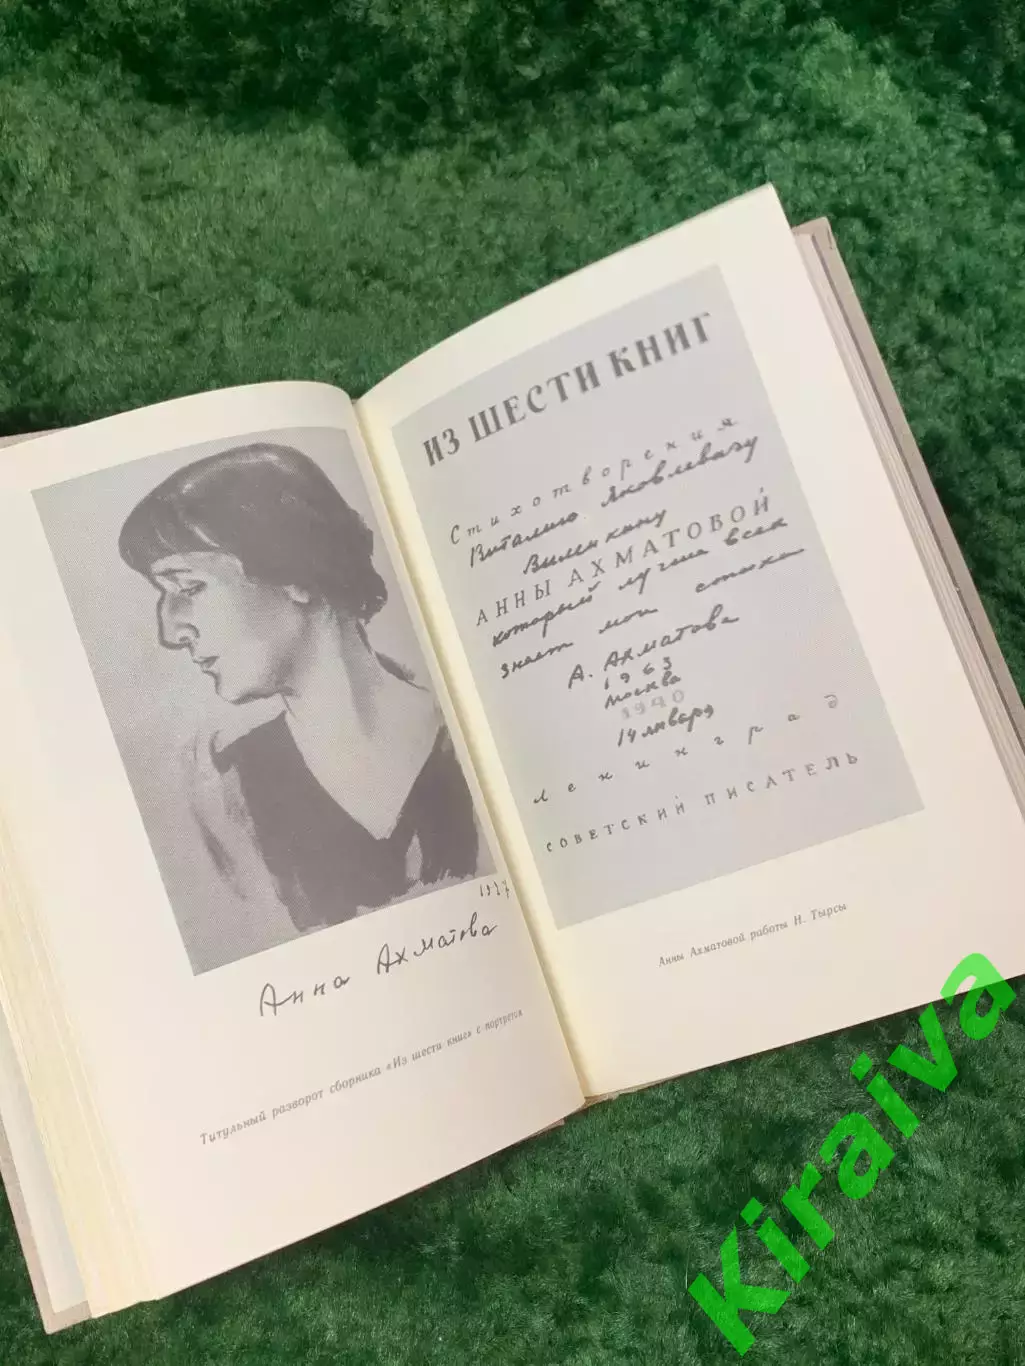 1927
Анна Ахматова
Титульный разворот сборника «Из шести книг» с портретом
ИЗ ШЕСТИ КНИГ
Стихотворения
Виталию Яковлевичу
Виленкину
АННЫ АХМАТОВОЙ
который лучше всех
знает мои стихи
А. Ахматова
1963
Москва
1940
14 января
ленинград
СОВЕТСКИЙ ПИСАТЕЛЬ
Анны Ахматовой работы Н. Тырсы
Kiraiva